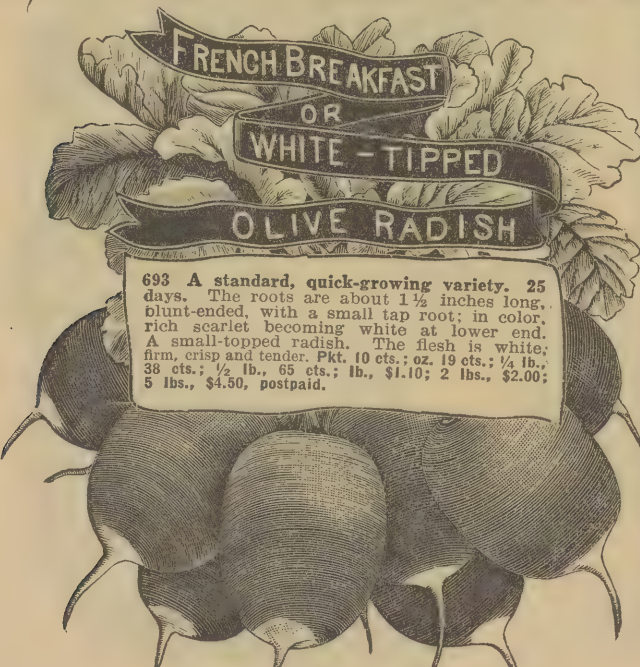 FRENCH BREAKFAST
OR
WHITE-TIPPED
OLIVE RADISH
693 A standard, quick-growing variety. 25
days. The roots are about 1½ inches long,
blunt-ended, with a small tap root; in color,
rich scarlet becoming white at lower end.
A small-topped radish. The flesh is white;
firm, crisp and tender. Pkt. 10 cts.; oz. 19 cts.; ¼ lb.,
38 cts.; ½ lb., 65 cts.; lb., $1.10; 2 lbs., $2.00;
5 lbs., $4.50, postpaid.